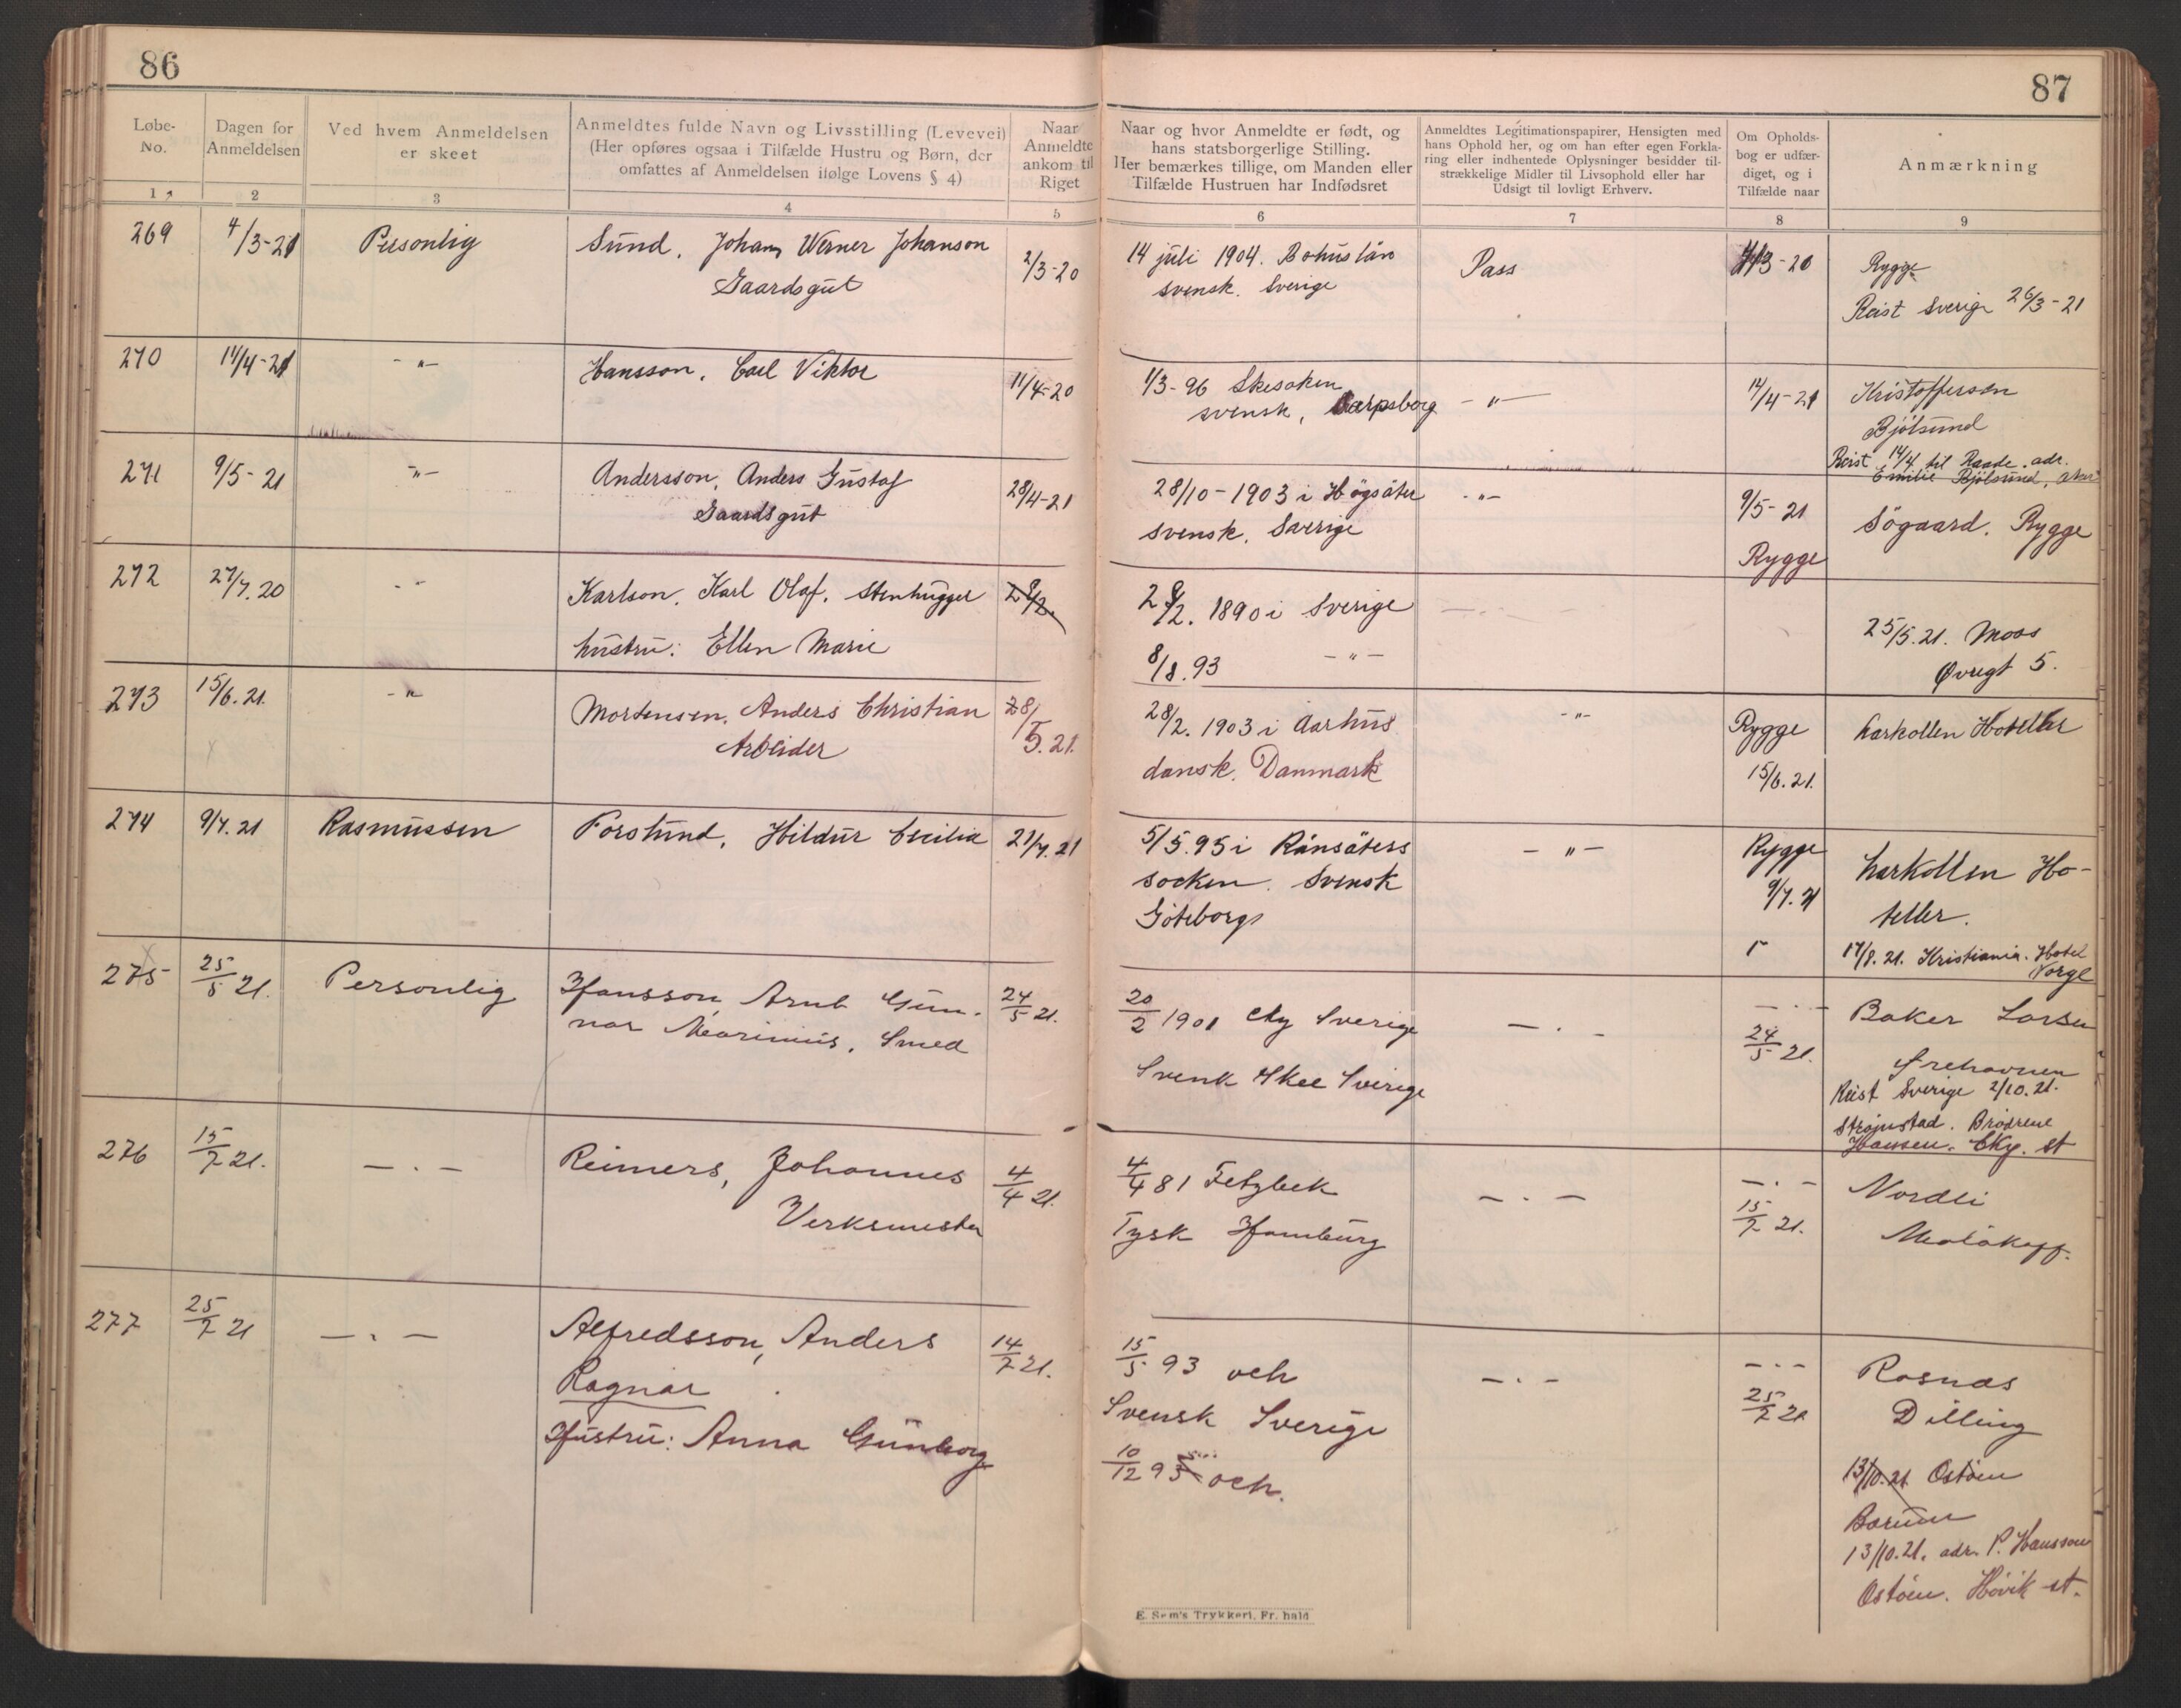 86
87
Løbe-
No.
Dagen for
Anmeldelsen
Ved hvem Anmeldelsen
er skeet
Anmeldtes fulde Navn og Livsstilling (Levevei)
(Her opføres ogsaa i Tilfælde Hustru og Børn, der
omfattes af Anmeldelsen ifølge Lovens § 4)
Naar
Anmeldte
ankom til
Riget
Naar og hvor Anmeldte er født, og
hans statsborgerlige Stilling.
Her bemærkes tillige, om Manden eller
Tilfælde Hustruen har Indfødsret
Anmeldtes Legitimationspapirer, Hensigten med
hans Ophold her, og om han efter egen Forkla-
ring eller indhentede Oplysninger besidder til-
strækkelige Midler til Livsophold eller har
Udsigt til lovligt Erhverv.
Om Opholds-
bog er udfær-
diget, og i
Tilfælde naar
Anmærkning
1 2 3 4 5 6 7 8 9
269 4/3-21 Personlig Sund, Johan Werner Johanson 2/3-20 14 juli 1904. Bohuslän Pass 4/3-20 Rygge
Gaardsgut svensk. Sverige Reist Sverige 26/3-21
270 11/4-21 -"- Hansson, Carl Viktor 11/4-20 1/3-96 Skesoken -"- 14/4-21 Kristoffersen
svensk, Sarpsborg Bjölsund
Reist 14/4 til Raade. adr.
Emilie Bjölsund,
271 9/5-21 -"- Andersson, Anders Gustaf 28/4-21 28/10-1903 i Högsäter -"- 9/5-21 Sögaard. Rygge
Gaardsgut svensk. Sverige Rygge
272 27/7.20 -"- Karlson, Karl Olaf, stenhugger 28/2. 1890 i Sverige
hustru: Ellen Marie 8/8.93 -"- 25/5.21. Moss
Øvregt 5.
273 15/6.21. -"- Mortensen, Anders Christian 28/5.21. 28/2. 1903 i Aarhus -"- Rygge Larkollen Hoteller
Arbeider dansk. Danmark 15/6.21.
274 9/7.21 Rasmussen Forslund, Hildur Cecilia 21/7.21 5/5.95 i Ränsäters -"- Rygge Larkollen Ho-
socken. Svensk 9/7.21 teller.
Göteborgs
17/8.21. Kristiania. Hotel
Norge
275 25/5 21. Personlig Hansson, Arnt Gun- 24/5 21. 20/2 1901 Sverige - . - - . - Baker Larsen
nar Marinius, Smed 24/5 21.
Svensk Skee Sverige
Reist Sverige 2/10.21.
Strömstad. Brödrene
Hansen. st
276 15/7 21. - . - Reimers, Johannes 4/4 21. 4/4 81 Fetzbek - . - - . - Nordli
Verksmester Tysk Hamburg 15/7 21. Malakoff.
277 25/7 21 - . - Alfredsson, Anders 14/7 21. 15/5 93 och - . - - . - Rosnæs
Ragnar Svensk Sverige 25/7 21 Dilling
Hustru: Anna Gunborg 10/12 93 och.
13/10.21 Ostöen
Bærum
13/10.21. adr. P. Hansson
Ostöen. Hövik st.
E. Sem's Trykkeri, Fr. hald